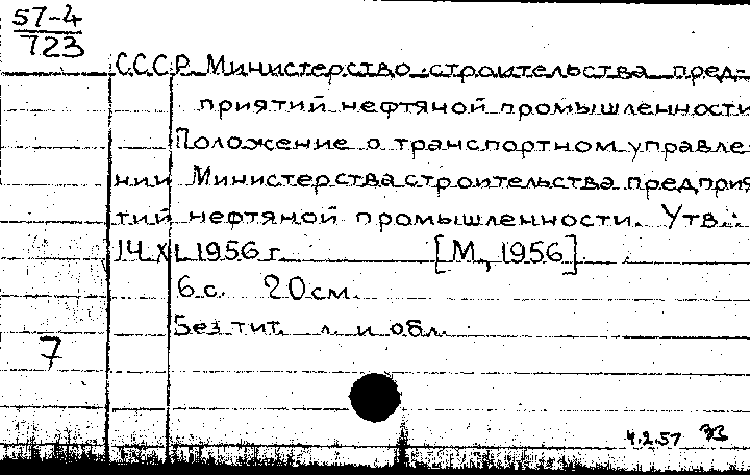 57-4
723
СССР. Министерство строительства пред-
приятий нефтяной промышленности
Положение о транспортном управле-
нии Министерства строительства предприя-
тий нефтяной промышленности. Утв.:
14 XI 1956 г. [М., 1956]
6 с. 20 см.
Без тит. л. и обл.
7
4.2.57